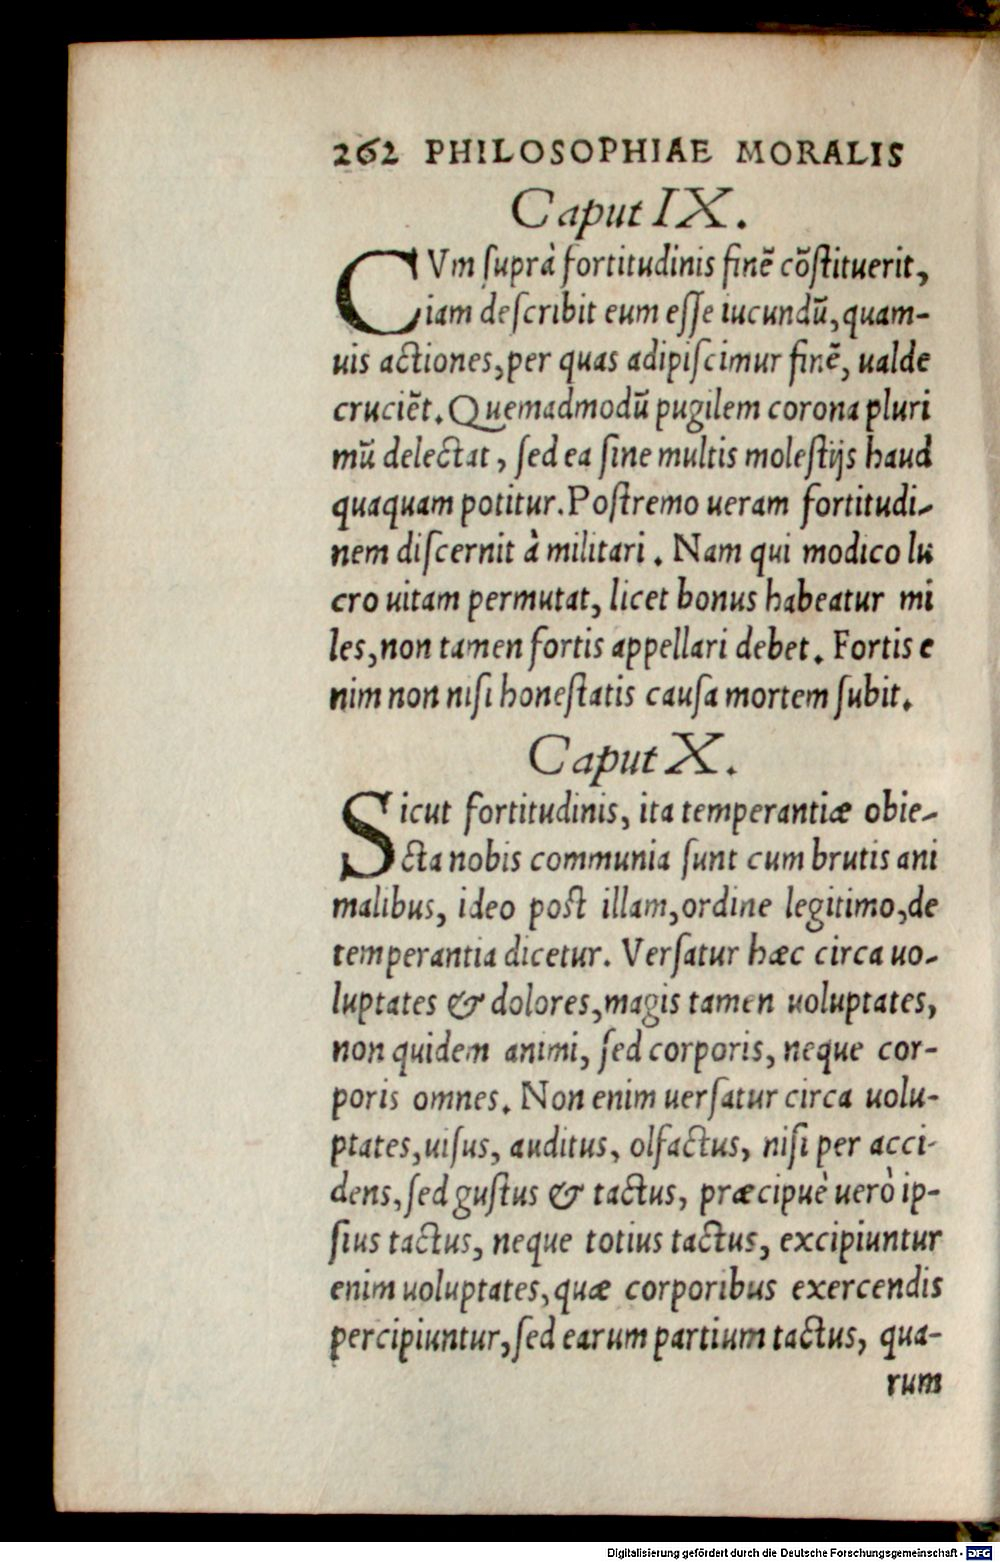 262 PHILOSOPHIAE MORALIS
Caput IX.
CVm ſuprà fortitudinis finẽ cõſtituerit,
iam deſcribit eum eſſe iucundũ, quam-
uis actiones, per quas adipiſcimur finẽ, ualde
cruciẽt. Quemadmodũ pugilem corona pluri
mũ delectat, ſed ea ſine multis moleſtijs haud
quaquam potitur. Poſtremo ueram fortitudi-
nem diſcernit à militari. Nam qui modico lu
cro uitam permutat, licet bonus habeatur mi
les, non tamen fortis appellari debet. Fortis e
nim non niſi honeſtatis cauſa mortem ſubit.
Caput X.
Sicut fortitudinis, ita temperantiæ obie-
cta nobis communia ſunt cum brutis ani
malibus, ideo poſt illam, ordine legitimo, de
temperantia dicetur. Verſatur hæc circa uo-
luptates & dolores, magis tamen uoluptates,
non quidem animi, ſed corporis, neque cor-
poris omnes. Non enim uerſatur circa uolu-
ptates, uiſus, auditus, olfactus, niſi per acci-
dens, ſed guſtus & tactus, præcipuè uerò ip-
ſius tactus, neque totius tactus, excipiuntur
enim uoluptates, quæ corporibus exercendis
percipiuntur, ſed earum partium tactus, qua-
rum
Digitalisierung gefördert durch die Deutsche Forschungsgemeinschaft - DFG